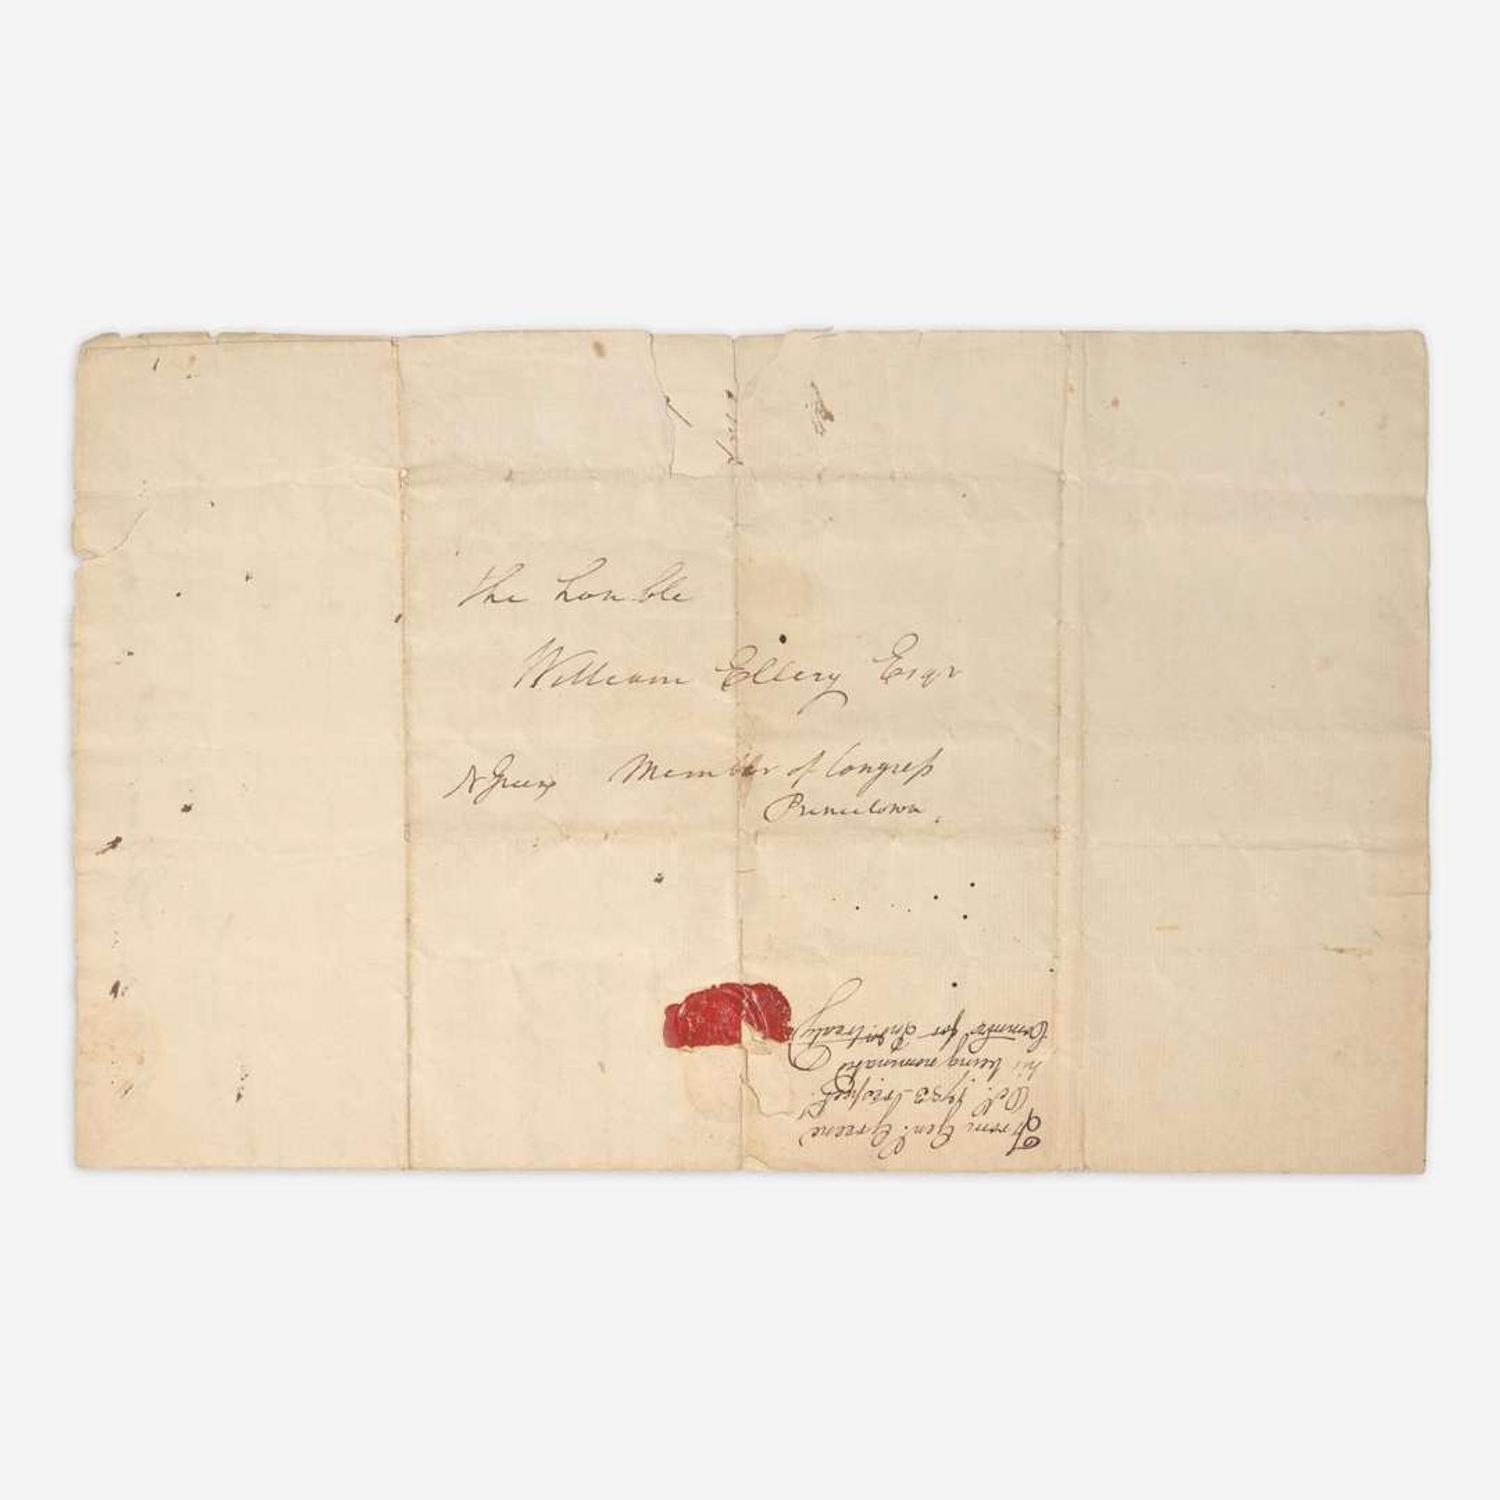 The honble
William Ellery Esqr
N Greene Member of Congress
Princetown
From Genl. Greene
Oct. 1783 respectg.
his being nominated
Commr. for Ind. treaty